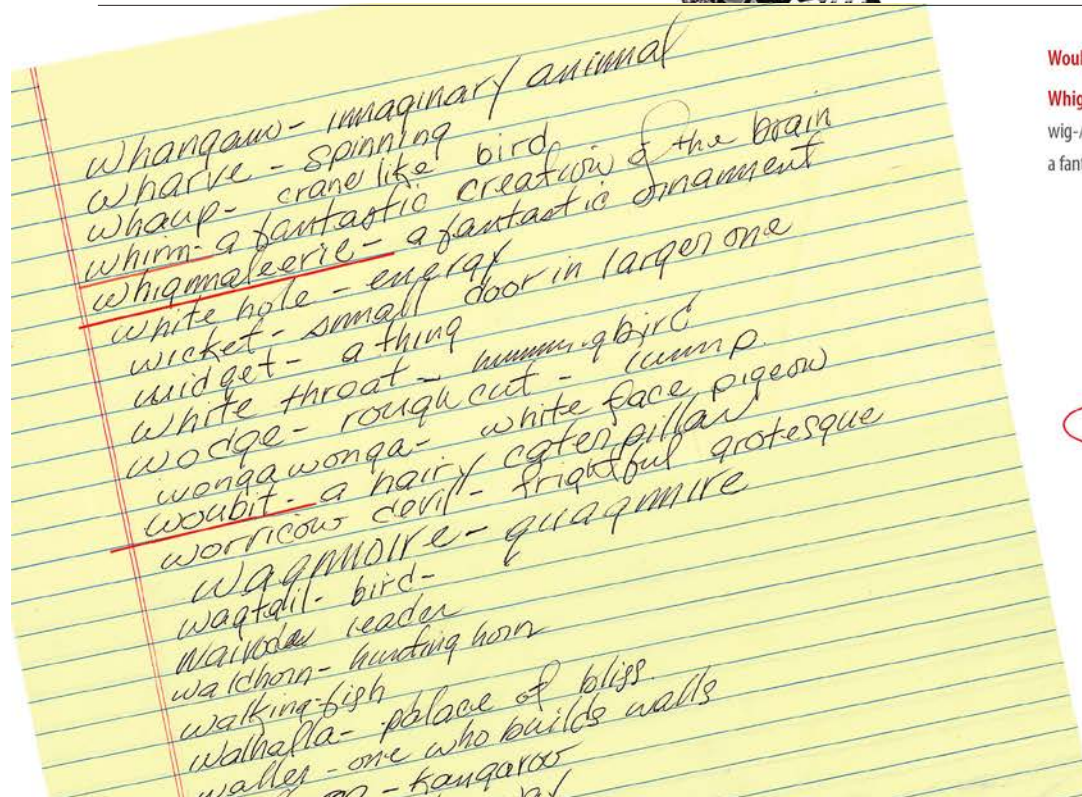 whangam - imaginary animal
wharve - spinning
whaup - crane like bird
whim - a fantastic creation of the brain
whigmaleerie - a fantastic ornament
white hole - energy
wicket - small door in larger one
widget - a thing
white throat - hummingbird
wodge - rough cut - lump.
wonga wonga - white face pigeon
woubit - a hairy caterpillar
worricow devil - frightful grotesque
wagmoire - quagmire
wagtail - bird -
waivode leader
waldhorn - hunting horn
walking-fish
walhalla - palace of bliss.
waller - one who builds walls
- kangaroo
Woul
Whig
wig-
a fant